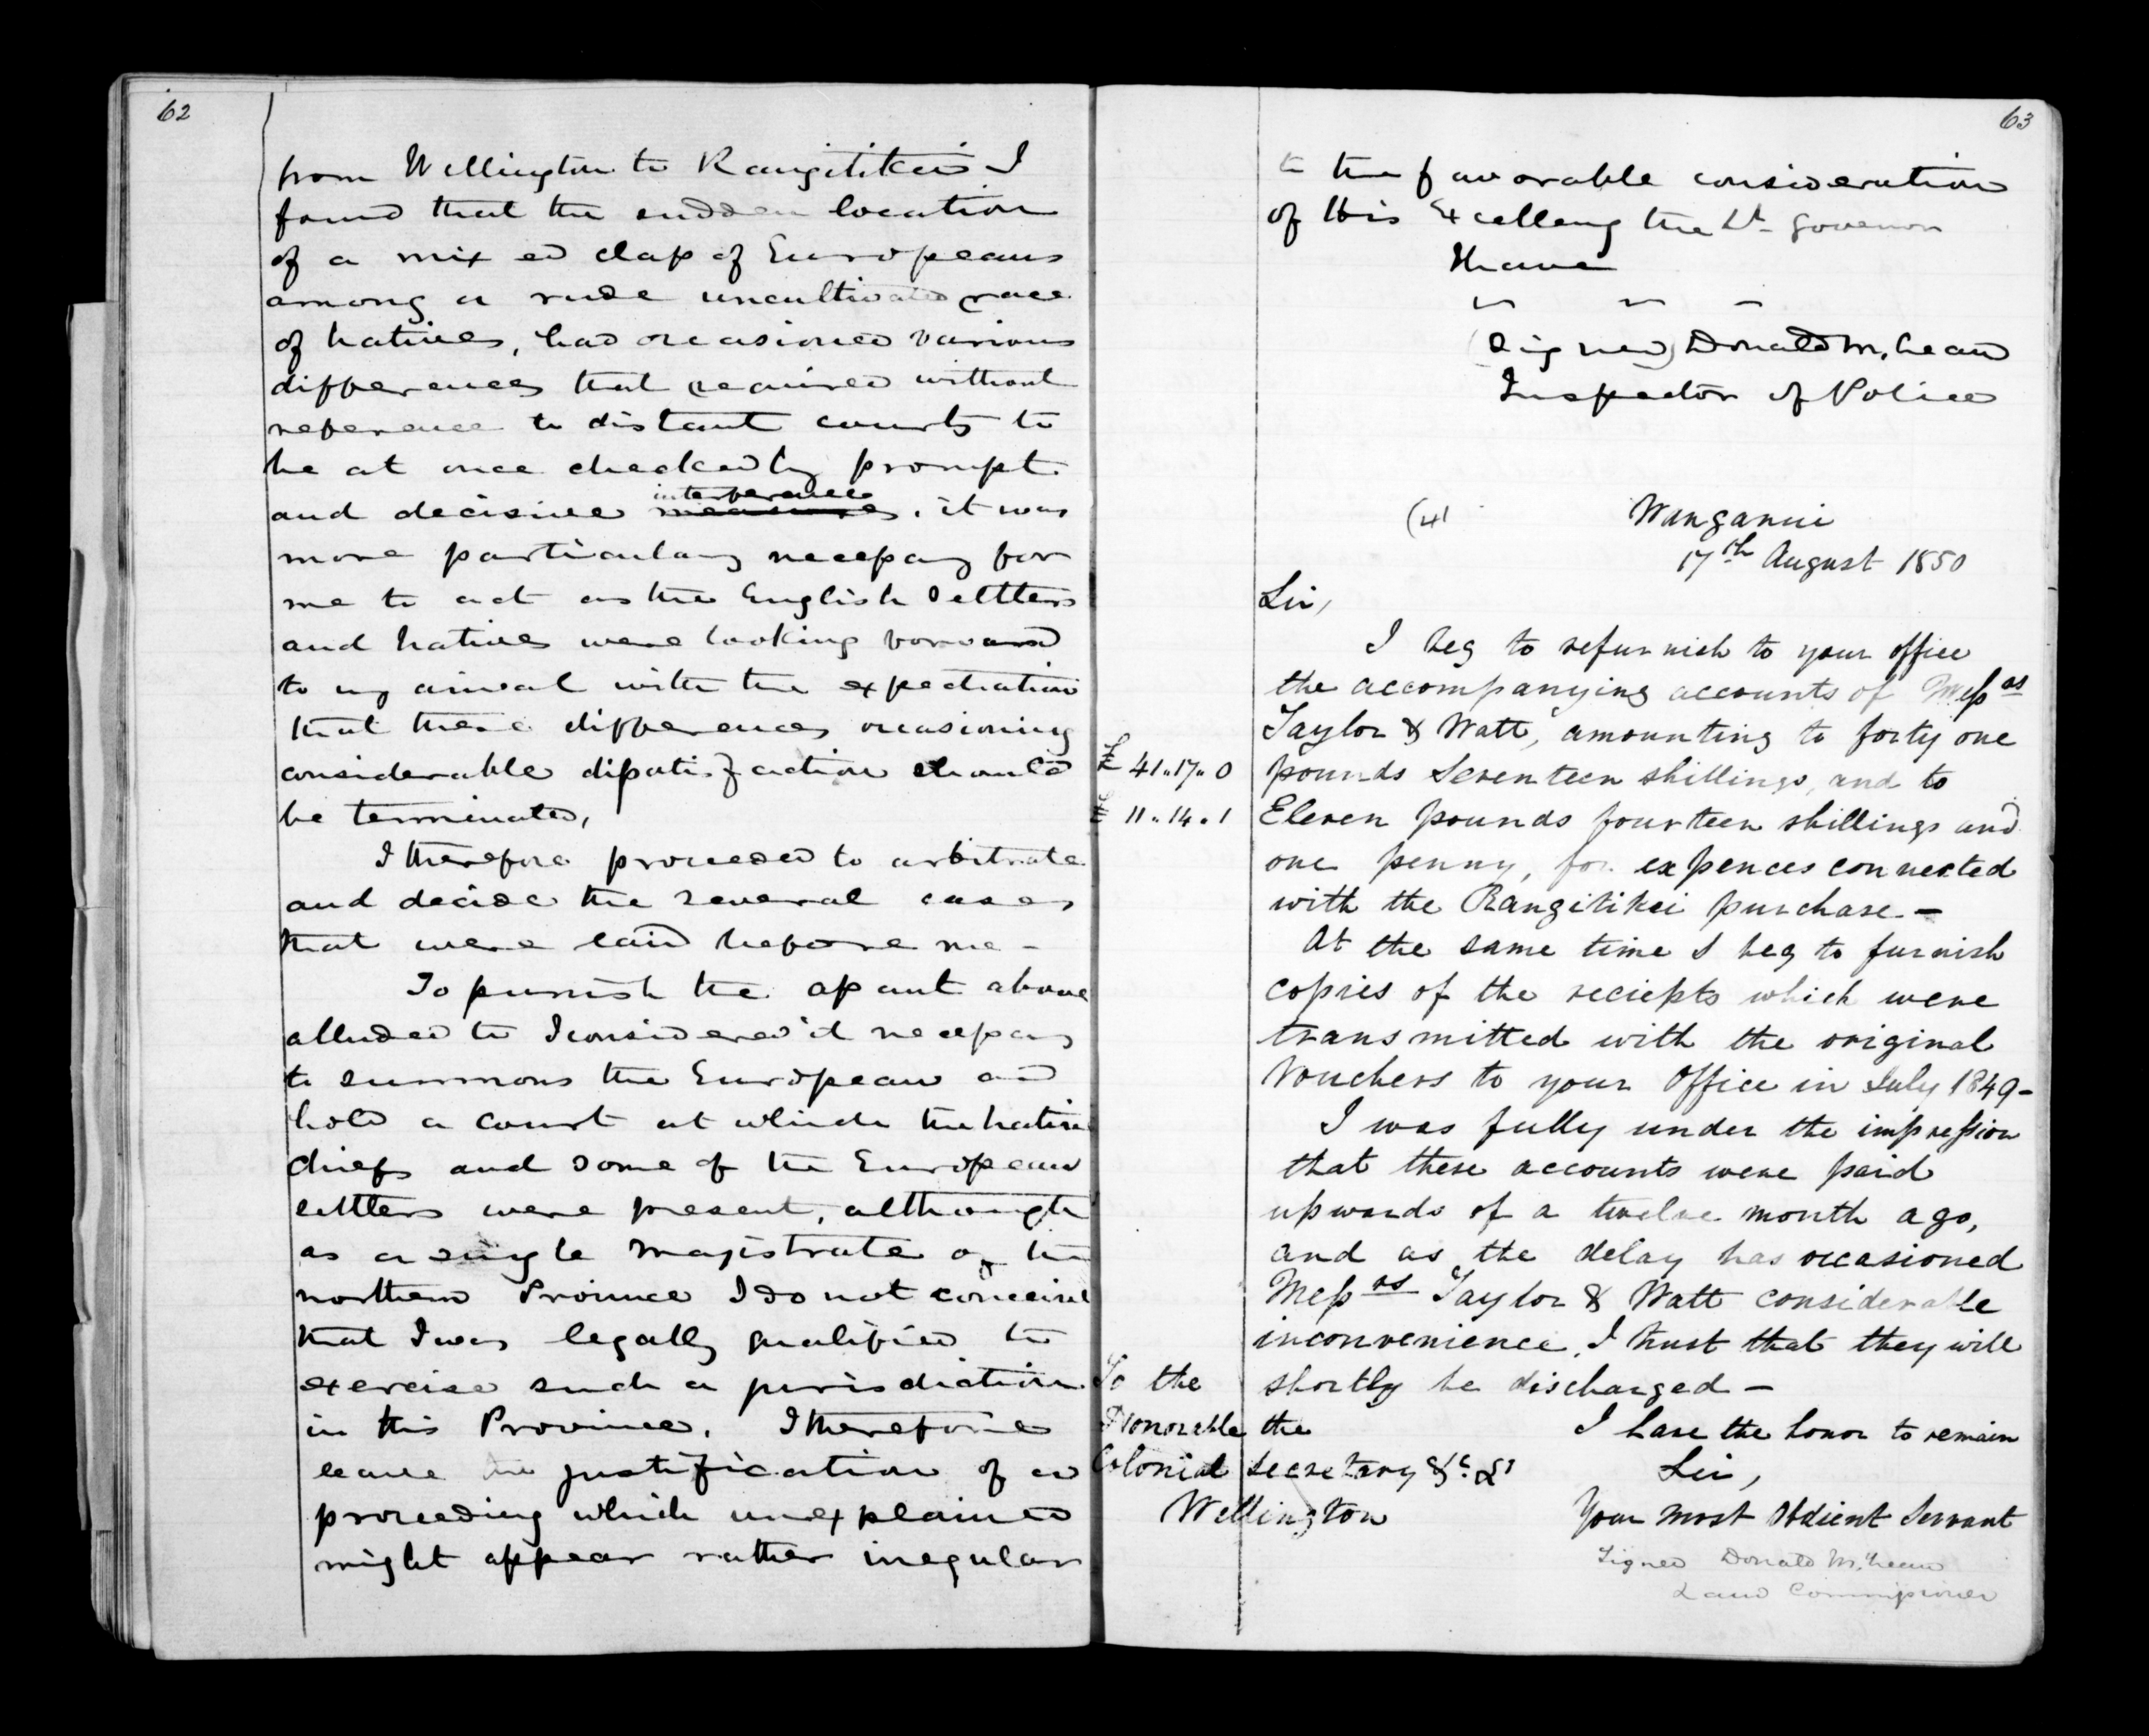 62
from Wellington to Rangitikei I
found that the sudden location
of a mixed class of Europeans
among a rude uncultivated race
of natives, had occasioned various
differences that required without
reference to distant courts to
be at once checked by prompt
and decisive measures interference. it was
more particularly necessary for
me to act as the English Settlers
and natives were looking forward
to my arrival with the expectation
that these differences occasioning
considerable dissatisfaction should
be terminated,
I therefore proceeded to arbitrate
and decide the several cases
that were laid before me -
To punish the assault above
alluded to I considered it necessary
to summons the European and
hold a court at which the native
chiefs and some of the European
settlers were present, although
as a single Magistrate of the
northern Province I do not conceive
that I was legally qualified to
exercise such a jurisdiction
in this Province. I therefore
leave the justification of a
proceeding which unexplained
might appear rather irregular
63
to the favorable consideration
of His Excellency the Lt Governor
I have
" " "
(Signed) Donald McLean
Inspector of Police
(41
Wanganui
17th August 1850
Sir,
I beg to refurnish to your office
the accompanying accounts of Messrs
Taylor & Watt, amounting to forty one
£ 41.17.0 pounds Seventeen shillings, and to
£ 11.14.1 Eleven pounds fourteen shillings and
one penny, for expences connected
with the Rangitikei purchase. -
At the same time I beg to furnish
copies of the reciepts which were
transmitted with the original
Vouchers to your Office in July 1849 -
I was fully under the impression
that these accounts were paid
upwards of a twelve month ago,
and as the delay has occasioned
Messrs Taylor & Watt considerable
inconvenience, I trust that they will
shortly be discharged -
I have the honor to remain
Sir,
Your most obdient Servant
Signed Donald McLean
Land Commissioner
To the
Honorable the
Colonial Secretary &c. &c
Wellington